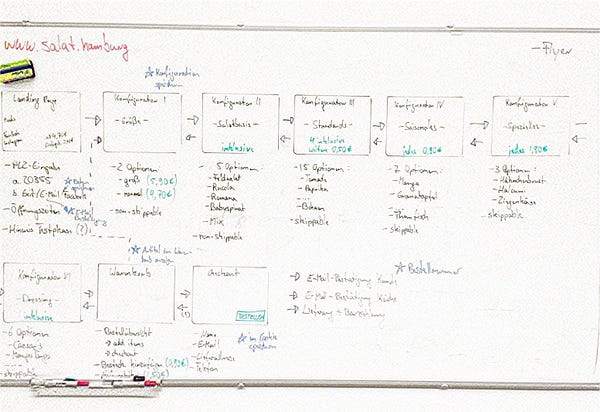 www.salat.hamburg
- Flyer
Konfiguration
speichern
Landing Page
Konfigurator I
- Größe -
Konfigurator II
- Salatbasis -
inklusive
Konfigurator III
- Standards -
4 inklusive
weitere 0,50€
Konfigurator IV
- Saisonales -
jedes 0,90€
Konfigurator V
- Spezielles -
jedes 1,90€
- PLZ-Eingabe
a 20355
- Öffnungszeiten
- Hinweis Testphase (?)
- 2 Optionen
- groß (5,90€)
- normal (4,70€)
- non-skippable
5 Optionen
- Feldsalat
- Rucola
- Romana
- Babyspinat
- Mix
- non-skippable
- 15 Optionen:
- Tomate
- Paprika
- ...
- Bohnen
- skippable
- 7 Optionen:
- Mango
- Granatapfel
- ...
- Thunfisch
- skippable
- 3 Optionen:
- Hähnchenbrust
- Halloumi
- Ziegenkäse
- skippable
Konfigurator VI
- Dressing -
inklusive
Warenkorb
Checkout
BESTELLEN
Bestellnummer
E-Mail-Bestätigung Kunde
E-Mail-Bestätigung Küche
Lieferung + Barzahlung
- 6 Optionen
- Caesar's
- ...
- skippable
- Bestellübersicht
→ add items
→ checkout
(0,90€)
- Name
- E-Mail
- Lieferadresse
- Telefon
im Cookie
speichern